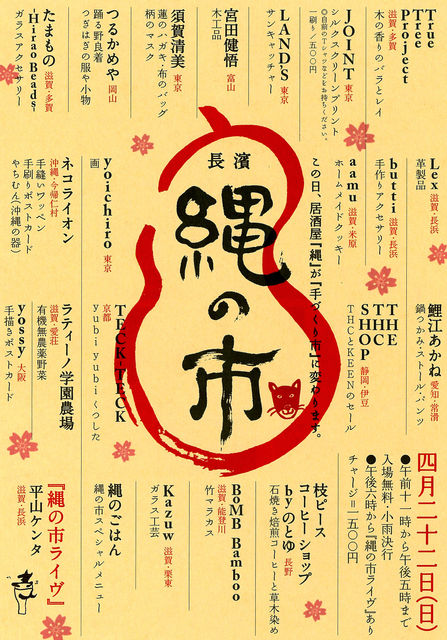 True
Tree
Project
滋賀・多賀
木の香りのバラとレイ
JOINT 東京
シルクスクリーンプリント
◎自前のTシャツなどをお持ちください。
一刷り/五〇〇円
LAND'S 東京
サンキャッチャー
宮田健悟 富山
木工品
須賀清美 東京
蓮のハガキ・布のバッグ
柄ののマスク
つるかめや 岡山
踊る野良着
つぎはぎの服や小物
たまもの 滋賀・多賀
-Hirao Beads-
ガラスアクセサリー
Lex 滋賀・長浜
革製品
butti 滋賀・長浜
手作りアクセサリー
aamu 滋賀・米原
ホームメイドクッキー
この日、居酒屋『縄』が『手づくり市』に変わります。
長濱
縄の市
yoichiro 東京
画
ネコライオン
沖縄・今帰仁村
手縫いワッペン
手刷りポストカード
やちむん(沖縄の器)
鯉江あかね 愛知・常滑
鍋つかみ・ストール・パンツ
THE
THC
SHOP 静岡・伊豆
THCとKEENのセール
TECK-TECK
京都
yubiyubiくつした
ラティーノ学園農場
滋賀・愛荘
有機無農薬野菜
yossy 大阪
手描きポストカード
四月二十二日(日)
●午前十一時から午後五時まで
入場無料・小雨決行
●午後六時から『縄の市ライヴ』あり
チャージ=一五〇〇円
枝ピース
コーヒーショップ
byのとゆ 長野
石焼き焙煎コーヒーと草木染め
BoMB Bamboo
滋賀・能登川
竹マラカス
Kazuw 滋賀・栗東
ガラス工芸
縄のごはん
縄の市スペシャルメニュー
『縄の市ライヴ』
平山ケンタ
滋賀・長浜